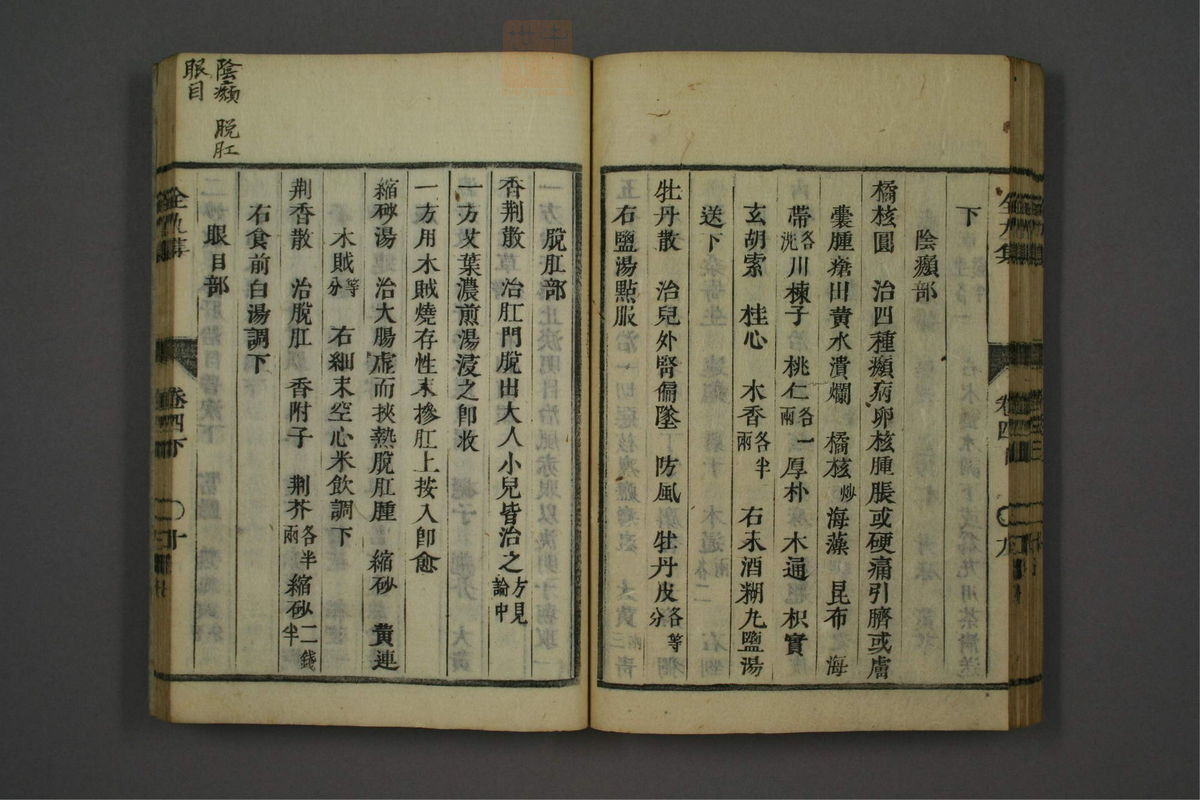 下
陰㿗部
橘核圓　治四種㿗病卵核腫脹或硬痛引臍或膚
囊腫瘡出黃水潰爛　橘核炒　海藻　昆布　海
帶各洗　川楝子　桃仁各一兩　厚朴　木通　枳實
玄胡索　桂心　木香各半兩　右末酒糊丸鹽湯
送下
牡丹散　治兒外腎偏墜　防風　牡丹皮各等分
右鹽湯點服
脫肛部
香荆散　治肛門脫出大人小兒皆治之方見論中
一方艾葉濃煎湯浸之即收
一方用木賊燒存性末摻肛上按入即愈
縮砂湯　治大腸虛而挾熱脫肛腫　縮砂　黃連
木賊等分　右細末空心米飲調下
荆香散　治脫肛　香附子　荆芥各半兩　縮砂二錢半
右食前白湯調下
眼目部
卷四下
十
陰㿗　脱肛
眼目